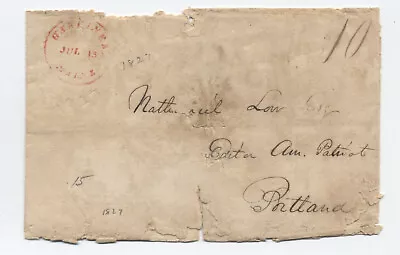 JUL 13
10
1827
Nathaniel Low Esq
Editor Am. Patriot
Portland
15
1827